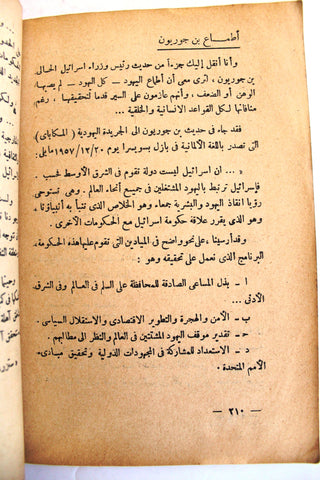 أطماع بن جوريون
وأنا أنقل إليك جزءاً من حديث رئيس وزراء اسرائيل الحالى
بن جوريون ، لترى معى أن أطماع اليهود – كل اليهود – لم يصبها
الوهن أو الضعف ، وأنهم عازمون على السير قدماً لتحقيقها ، رغم
منافاتها لكل القواعد الانسانية والخلقية ...
فقد جاء فى حديث بن جوريون الى الجريدة اليهودية (المكابى)
التى تصدر باللغة الألمانية فى بازل بسويسرا يوم ١٩٥٧/١٢/٢٠ مايلى:
« ... ان اسرائيل ليست دولة تقوم فى الشرق الأوسط فحسب .
فإسرائيل ترتبط باليهود المشتغلين فى جميع أنحاء العالم . وهى تستوحى
رؤيا انقاذ اليهود والبشرية جمعاء وهو الخلاص الذى تنبأ به أنبياؤنا .
وهو الذى يقرر علاقة حكومة اسرائيل مع الحكومات الأخرى .
وقد أرسينا ، على نحو واضح فى الميادين التى تقوم عليها هذه الحكومة،
البرنامج الذى نعمل على تحقيقه وهو :
ا – بذل المساعى الصادقة للمحافظة على السلم فى العالم وفى الشرق
الأدنى ...
ب – الأمن والهجرة والتطوير الاقتصادى والاستقلال السياسى .
ح – تقدير موقف اليهود المشتتين فى العالم والنظر الى مطالبهم .
د – الاستعداد للمشاركة فى المجهودات الدولية وتحقيق مبادىء
الأمم المتحدة .
— ٢١٠ —